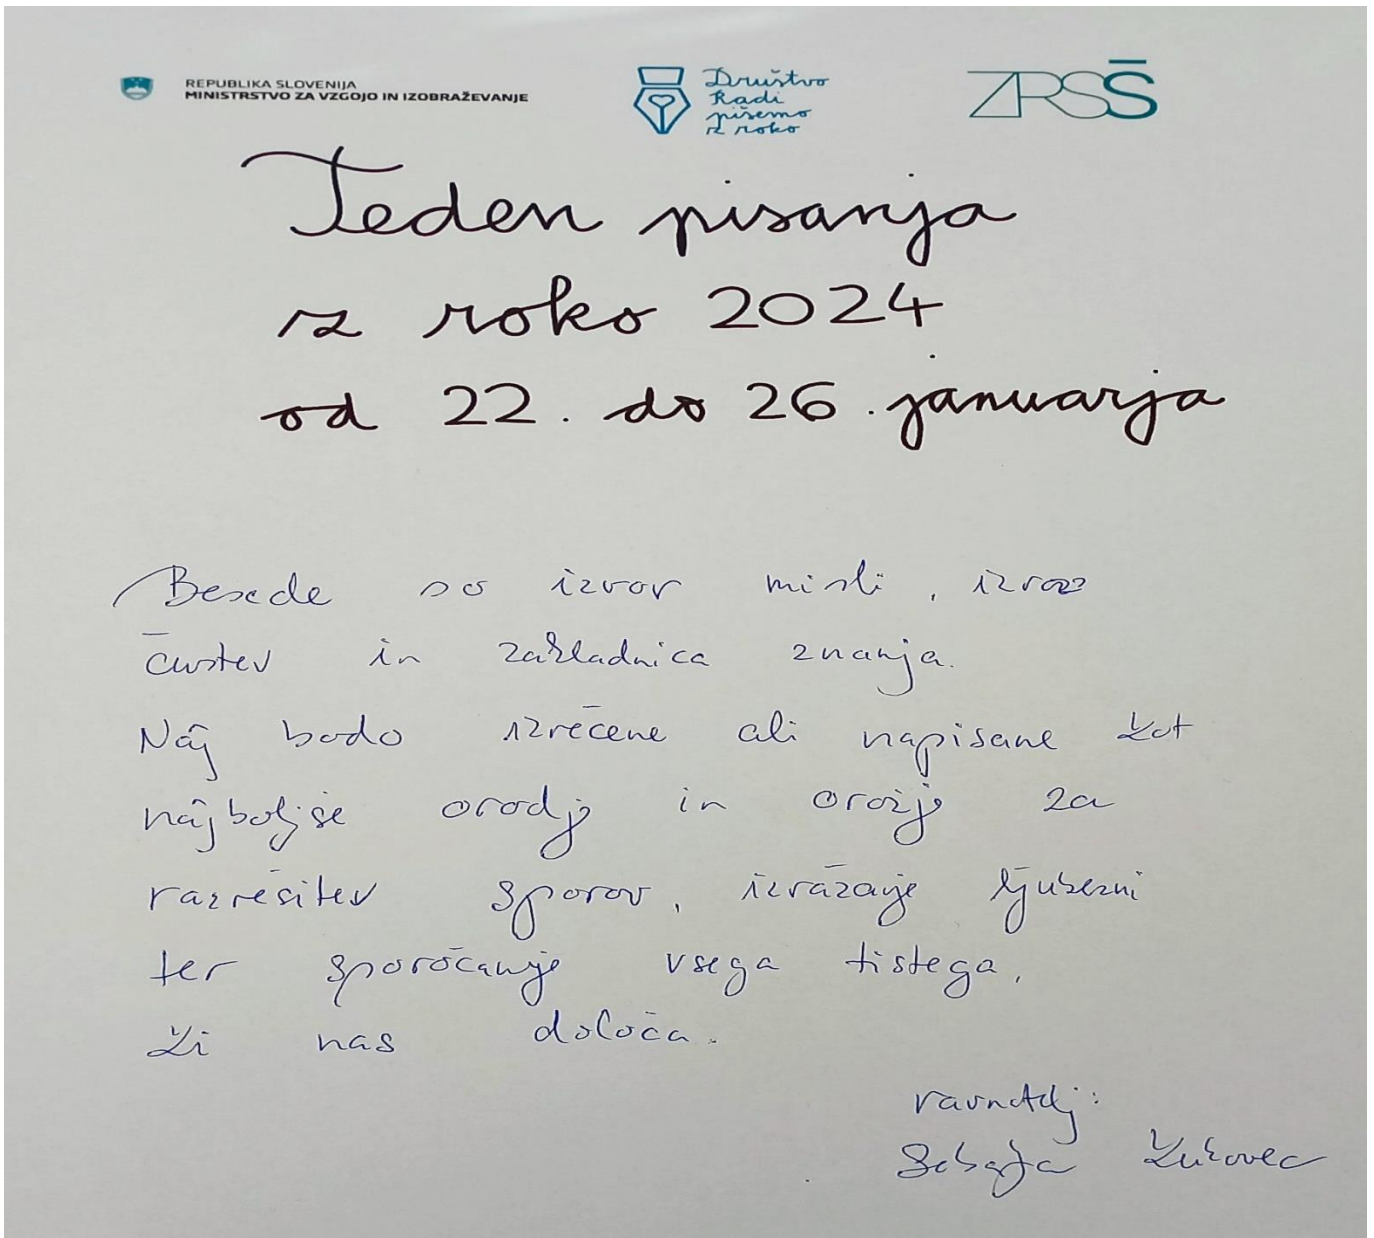 REPUBLIKA SLOVENIJA
MINISTRSTVO ZA VZGOJO IN IZOBRAŽEVANJE
Društvo
Radi
pišemo
z roko
ZRSŠ
Teden pisanja
z roko 2024
od 22. do 26. januarja
Besede so izvor misli, izraz
čustev in zakladnica znanja.
Naj bodo izrečene ali napisane kot
najboljše orodje in orožje za
razrešitev sporov, izražanje ljubezni
ter sporočanje vsega tistega,
ki nas določa.
ravnatelj: